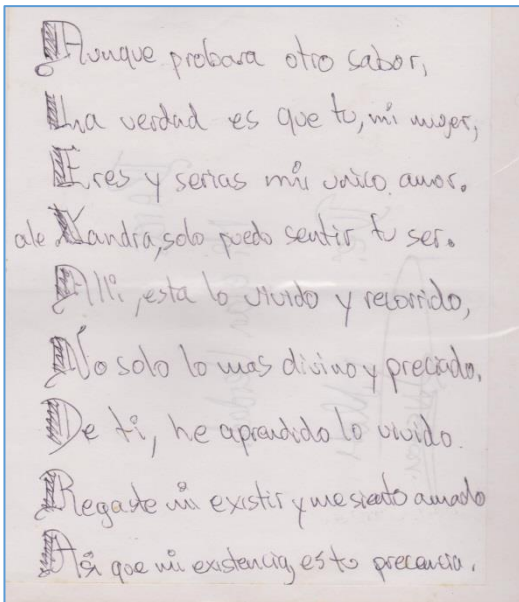 Aunque probara otro sabor,
La verdad es que tu, mi mujer,
Eres y serias mi unico amor.
ale Xandra, solo puedo sentir tu ser.
Alli, esta lo vivido y recorrido,
No solo lo mas divino y preciado.
De ti, he aprendido lo vivido.
Regaste mi existir y me siento amado
Asi que mi existencia, es tu precencia.